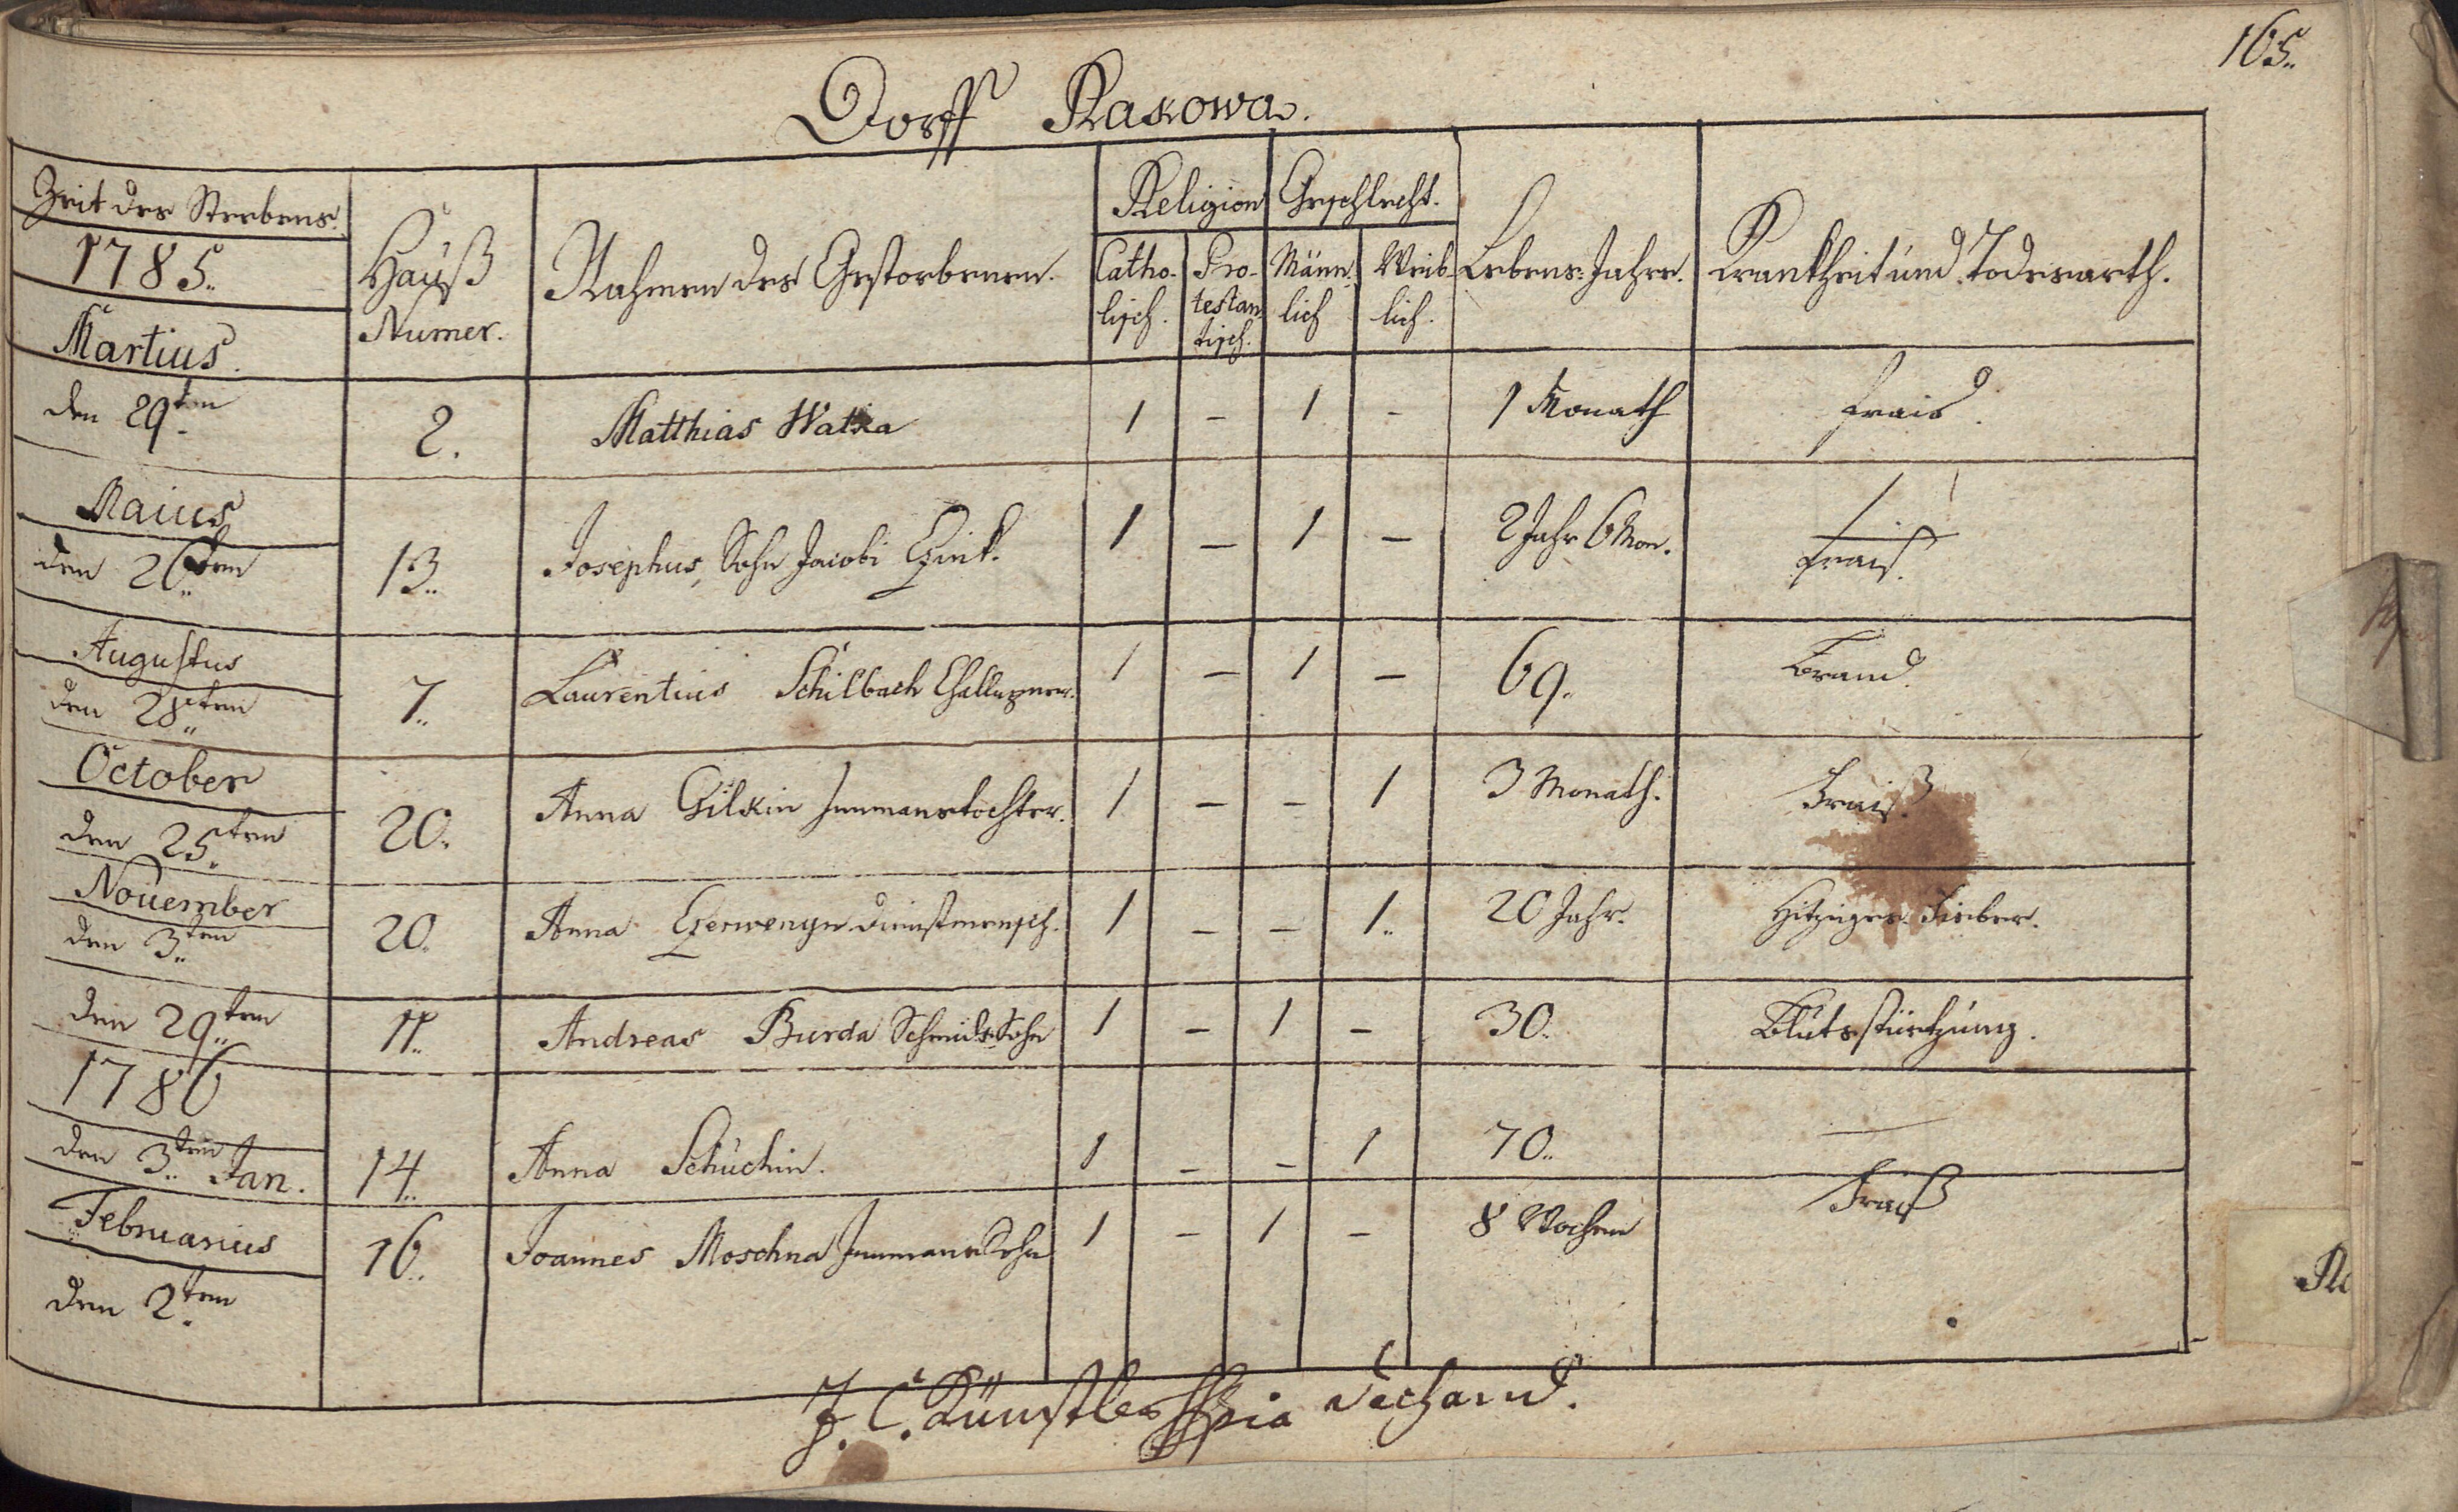 165.
Dorff Rakowa.
Zeit des Sterbens. | Hauß Numer. | Nahmen des Gestorbenen. | Religion | Geschlecht. | Lebens-Jahre. | Krankheit und Todesarth.
1785. | Catho-lisch. | Pro-testan-tisch. | Männ-lich | Weib-lich.
Martius.
den 29ten | 2. | Matthias Watka | 1 | - | 1 | - | 1 Monath | Frais.
Maius
den 26ten | 13. | Josephus, Sohn Jacobi | 1 | - | 1 | - | 2 Jahr 6 Mon. | Frais.
Augustus
den 28ten | 7. | Laurentius Schilbach Challupner. | 1 | - | 1 | - | 69. | Brand.
October
den 25ten | 20. | Anna Gilkin Innmanstochter. | 1 | - | - | 1 | 3 Monath. | Frais.
November
den 3ten | 20. | Anna Dienstmensch. | 1 | - | - | 1. | 20 Jahr. | Hitziges Fieber.
den 29ten | 11. | Andreas Burda Schmids Sohn | 1 | - | 1 | - | 30. | Blutsstürtzung.
1786
den 3ten Jan. | 14. | Anna Schuchin. | 1 | - | - | 1 | 70. | —
Februarius
den 2ten | 16. | Joannes Moschna Innmans Sohn | 1 | - | 1 | - | 8 Wochen | Fraiß
J. C. Künstler Dechand.